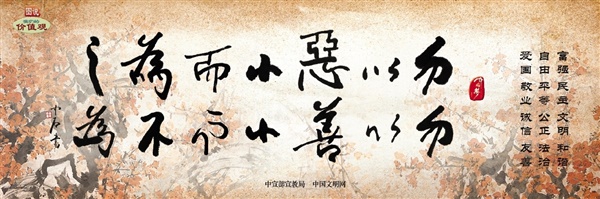 图说
我们的
价值观
富强 民主 文明 和谐
自由 平等 公正 法治
爱国 敬业 诚信 友善
勿以惡小而為之
勿以善小而不為
中宣部宣教局 中国文明网